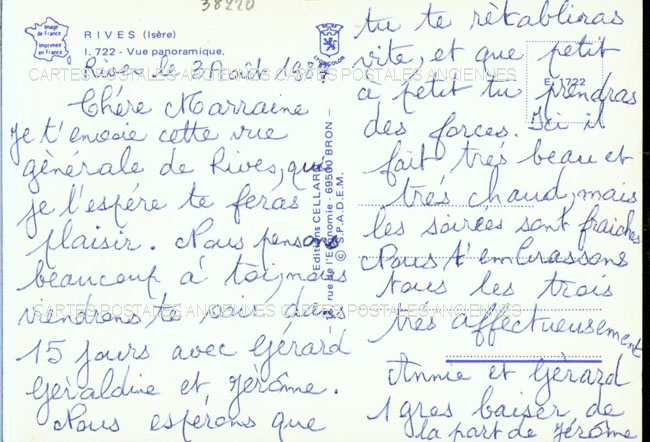 38220
Image de France
Imprimée en France
RIVES (Isère)
I. 722 - Vue panoramique.
Rives le 3 Août
Chére Marraine
Je t'envoie cette vue
générale de Rives, qui
je l'espére te feras
plaisir. Nous pensons
beaucoup à toi, nous
viendrons te voir dans
15 jours avec Gérard
Géraldine et Jérôme.
Nous espérons que
Editions CELLARD
rue de l'Economie - 69500 BRON -
© S.P.A.D.E.M.
E. 1722
tu te rétabliras
vite, et que petit
à petit tu prendras
des forces. Ici il
fait trés beau et
trés chaud, mais
les soirées sont fraiches
Nous t'embrassons
tous les trois
trés affectueusement
Annie et Gérard
1 gros baiser de
la part de Jérôme
CARTES POSTALES ANCIENNES CARTES POSTALES ANCIENNES
CARTES POSTALES ANCIENNES CARTES POSTALES ANCIENNES